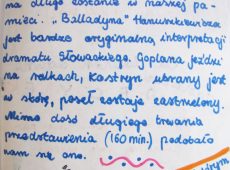 na długo zostanie w naszej pa-
mięci. "Balladyna" Hanuszkiewicza
jest bardzo oryginalną interpretacją
dramatu Słowackiego. Goplana jeździ
na rolkach, Kostryn ubrany jest
w skórę, poseł zostaje zastrzelony.
Mimo dość długiego trwania
przedstawienia (160 min.) podobało
nam się ono.